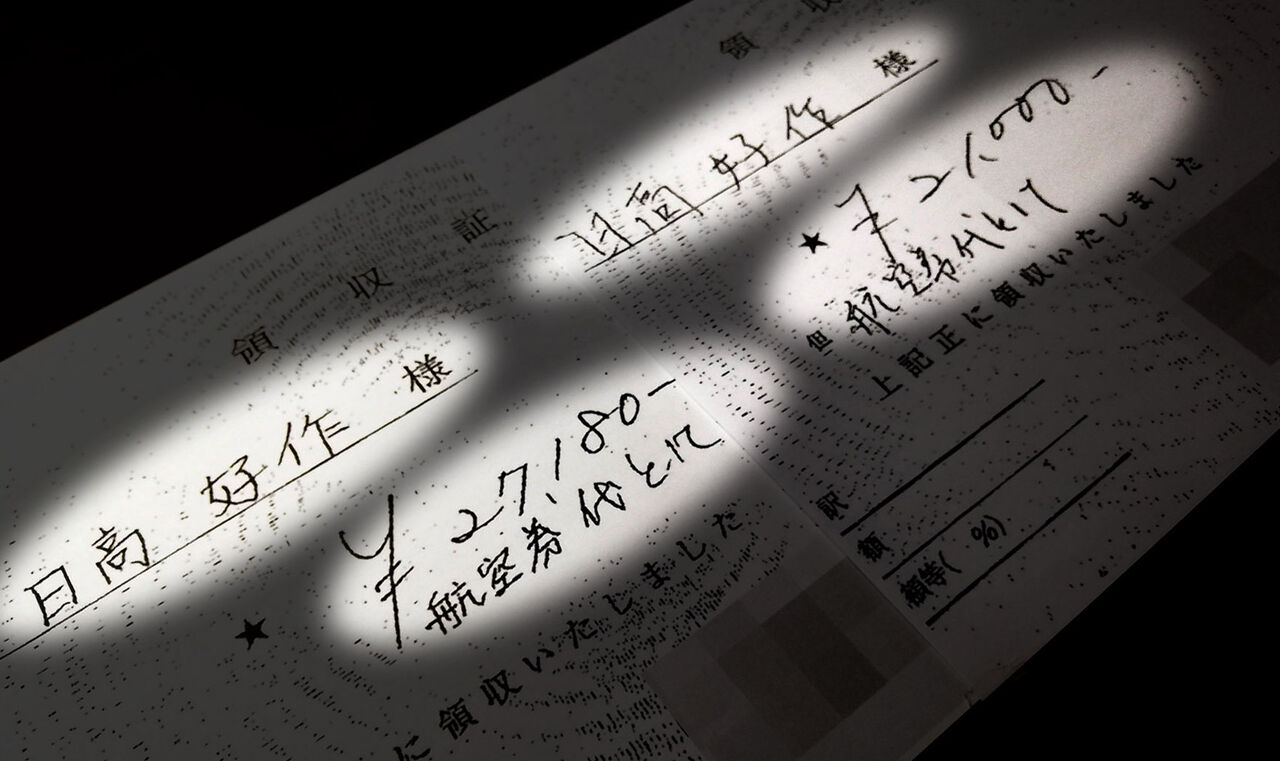 領収証
日高 好作 様
★
¥27,180-
航空券代として
に領収いたしました
領収
日高 好作 様
★ ¥21,000-
但 航空券代として
上記正に領収いたしました
訳
額
額等( %)